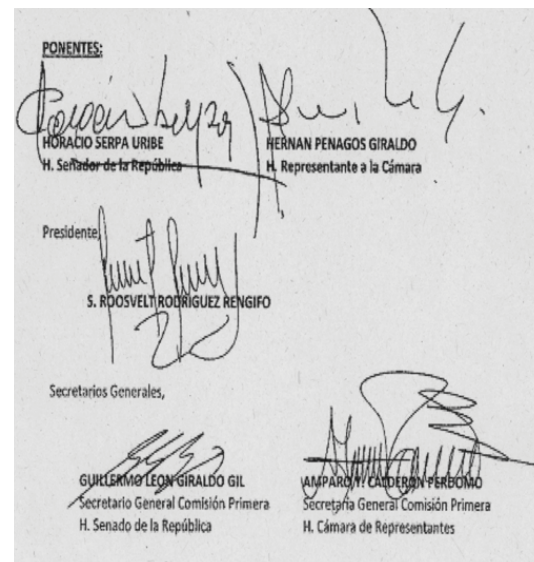 PONENTES:
HORACIO SERPA URIBE
H. Senador de la República
HERNAN PENAGOS GIRALDO
H. Representante a la Cámara
Presidente,
S. ROOSVELT RODRIGUEZ RENGIFO
Secretarios Generales,
GUILLERMO LEON GIRALDO GIL
Secretario General Comisión Primera
H. Senado de la República
AMPARO Y. CALDERON PERDOMO
Secretaria General Comisión Primera
H. Cámara de Representantes